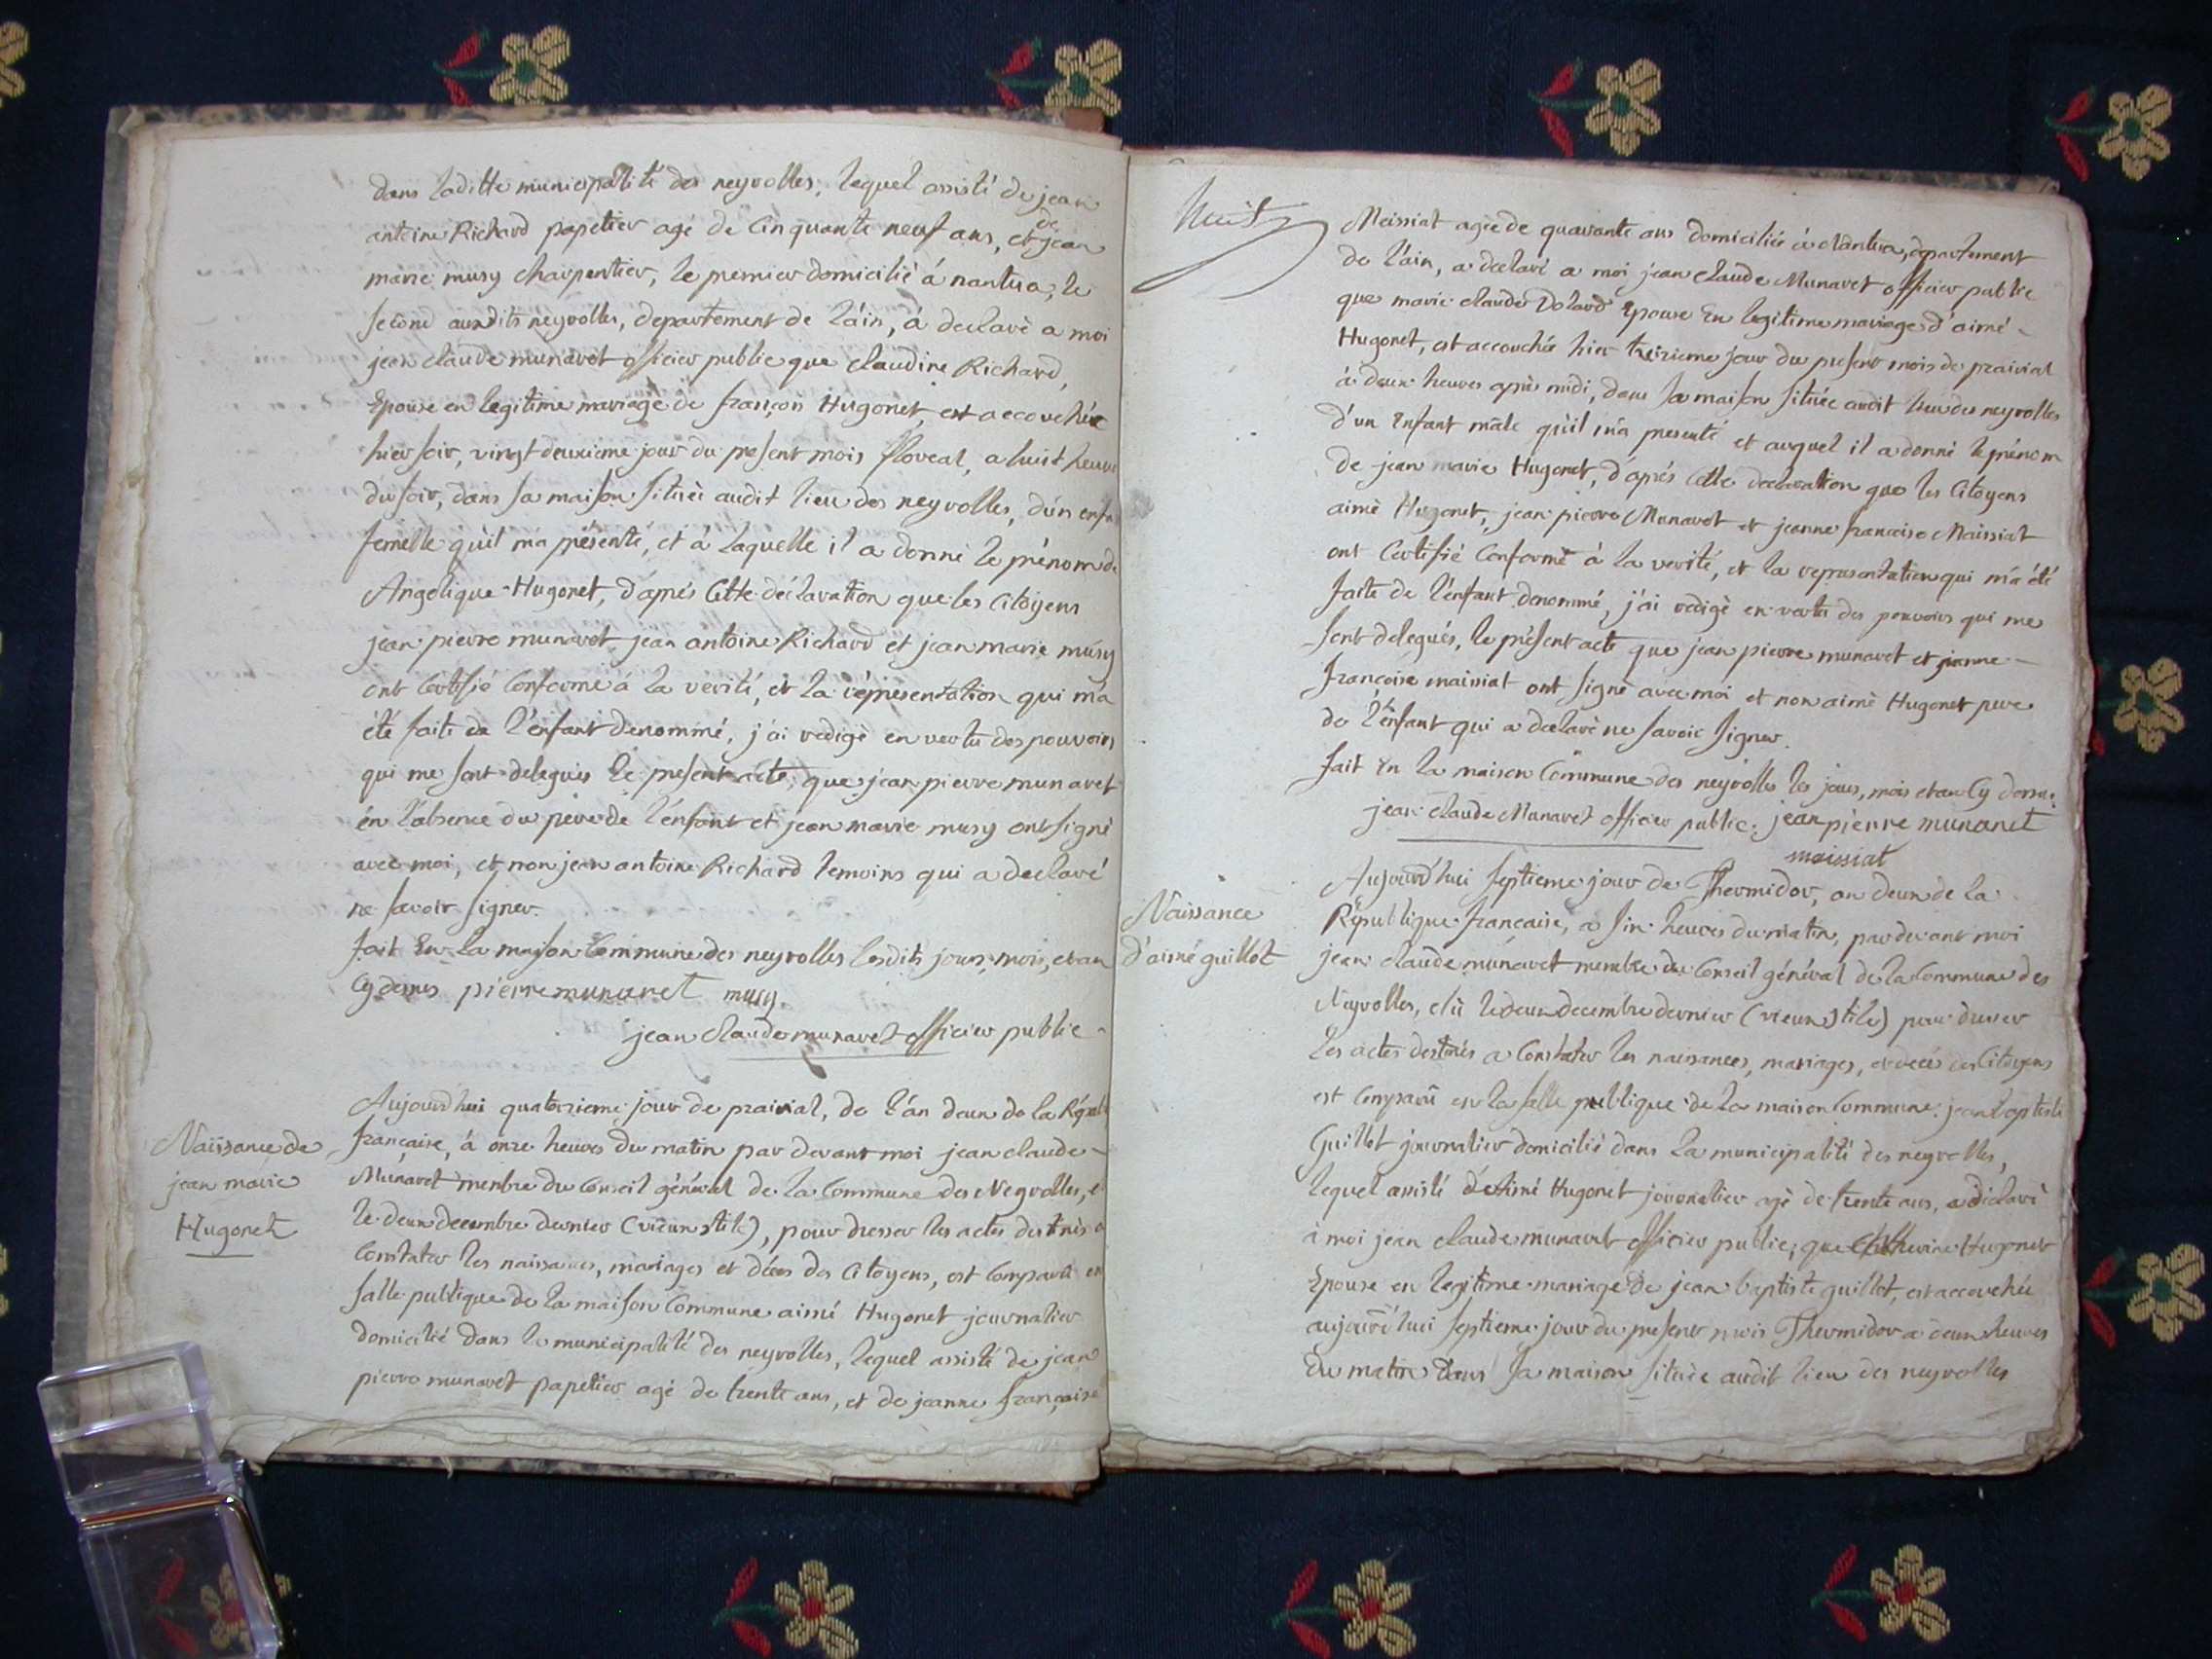 dans laditte municipalité des neyrolles, lequel assisté de jean
antoine Richard papetier agé de Cinquante neuf ans, et de jean
marie musy charpentier, le premier domicilié á nantua, le
second auxdits neyrolles, departement de l'áin, á declaré a moi
jean claude munaret officier public que claudine Richard,
Epouse en legitime mariage de françois Hugonet, est accouchée
hier soir, vingt deuxieme jour du present mois floreal, a huit heures
du soir, dans sa maison située audit lieu des neyrolles, d'un enfa
femelle qu'il m'a présenté, et á laquelle il a donné le prénom de
Angelique Hugonet, d'aprés Cette déclaration que les Citoyens
jean pierre munaret jean antoine Richard et jean marie musy
ont Certifié Conforme á la vérité, et la répresentation qui m'a
été faite de l'enfant denommé, j'ai redigé en vertu des pouvoirs
qui me sont delegués le present acte, que jean pierre munaret
en l'absence du pere de l'enfant et jean marie musy ont signé
avec moi, et non jean antoine Richard temoins qui a declaré
ne savoir signer.
fait En la maison Commune des neyrolles lesdits jours, mois, et an
Cy dessus pierre munaret musy
jean claude munaret officier public
Naissance de
jean marie
Hugonet
Aujourd'hui quatorzieme jour de prairial, de l'an deux de la Répub
française, á onze heures du matin par devant moi jean claude
Munaret membre du Conseil général de la Commune des Neyrolles, e
le deux decembre dernier (vieux stile), pour dresser les actes destinés a
Constater les naissances, mariages et décès des Citoyens, est Comparu en
salle publique de la maison Commune aimé Hugonet journalier
domicilié dans la municipalité des neyrolles, lequel assisté de jean
pierre munaret papetier agé de trente ans, et de jeanne française
huit
Meissiat agée de quarante ans domiciliée á Nantua, departement
de l'áin, a declaré a moi jean claude Munaret officier public
que marie claude Dolard Epouse En legitime mariage d'aimé
Hugonet, est accouchée hier treizieme jour du present mois de prairial
á deux heures aprés midi, dans sa maison située audit lieu des neyrolles
d'un Enfant mâle qu'il m'a presenté et auquel il a donné le prénom
de jean marie Hugonet, d'aprés Cette declaration que les Citoyens
aimé Hugonet, jean pierre Munaret et jeanne francoise Maissiat
ont Certifié Conforme á la verité, et la representation qui m'a été
faite de l'enfant denommé, j'ai redigé en vertu des pouvoirs qui me
sont delegués, le présent acte que jean pierre munaret et jeanne
françoise maissiat ont signé avec moi et non aimé Hugonet pere
de l'enfant qui a declaré ne savoir signer.
fait En la maison Commune des neyrolles les jours, mois et an Cy dessus.
jean claude Munaret officier public. jean pierre munaret
maissiat
Naissance
d'aimé guillot
Aujourd'hui septieme jour de Thermidor, an deux de la
République française, a six heures du matin, par devant moi
jean claude munaret membre du Conseil général de la Commune des
Neyrolles, élu le deux decembre dernier (vieux stile) pour dresser
les actes destinés a Constater les naissances, mariages, et décés des Citoyens
est Comparu en la salle publique de la maison Commune jean baptiste
Guillot journalier domicilié dans la municipalité des neyrolles,
lequel assisté d'Aimé Hugonet journalier agé de trente ans, a déclaré
á moi jean claude munaret officier public, que Hugonet
Epouse en legitime mariage de jean baptiste guillot, est accouchée
aujourd'hui septieme jour du present mois Thermidor a deux heures
du matin dans sa maison située audit lieu des neyrolles